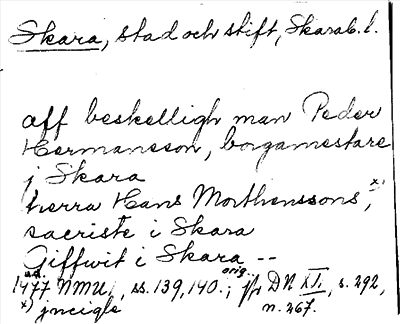 Skara, stad och stift, Skarab. l.
aff beskelligh man Peder
Hermansson, borgamestare
j Skara
herra Hans Morthenssons, x)
sacriste i Skara
Giffwit i Skara --
1477 NMU, ss. 139, 140. orig.; jfr DN XVI, s. 292,
x) jncigle n. 267.